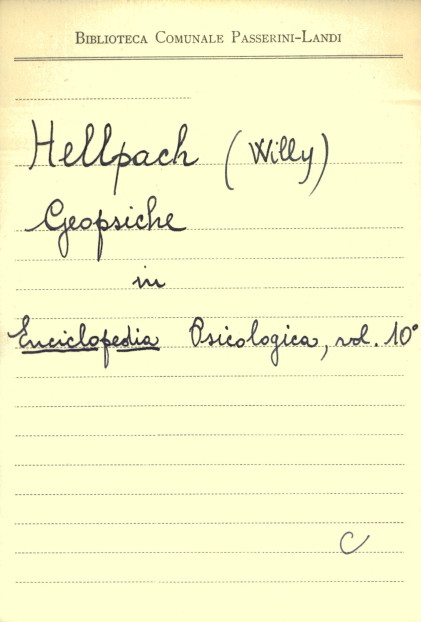 BIBLIOTECA COMUNALE PASSERINI-LANDI
Hellpach (Willy)
Geopsiche
in
Enciclopedia Psicologica, vol. 10°
C